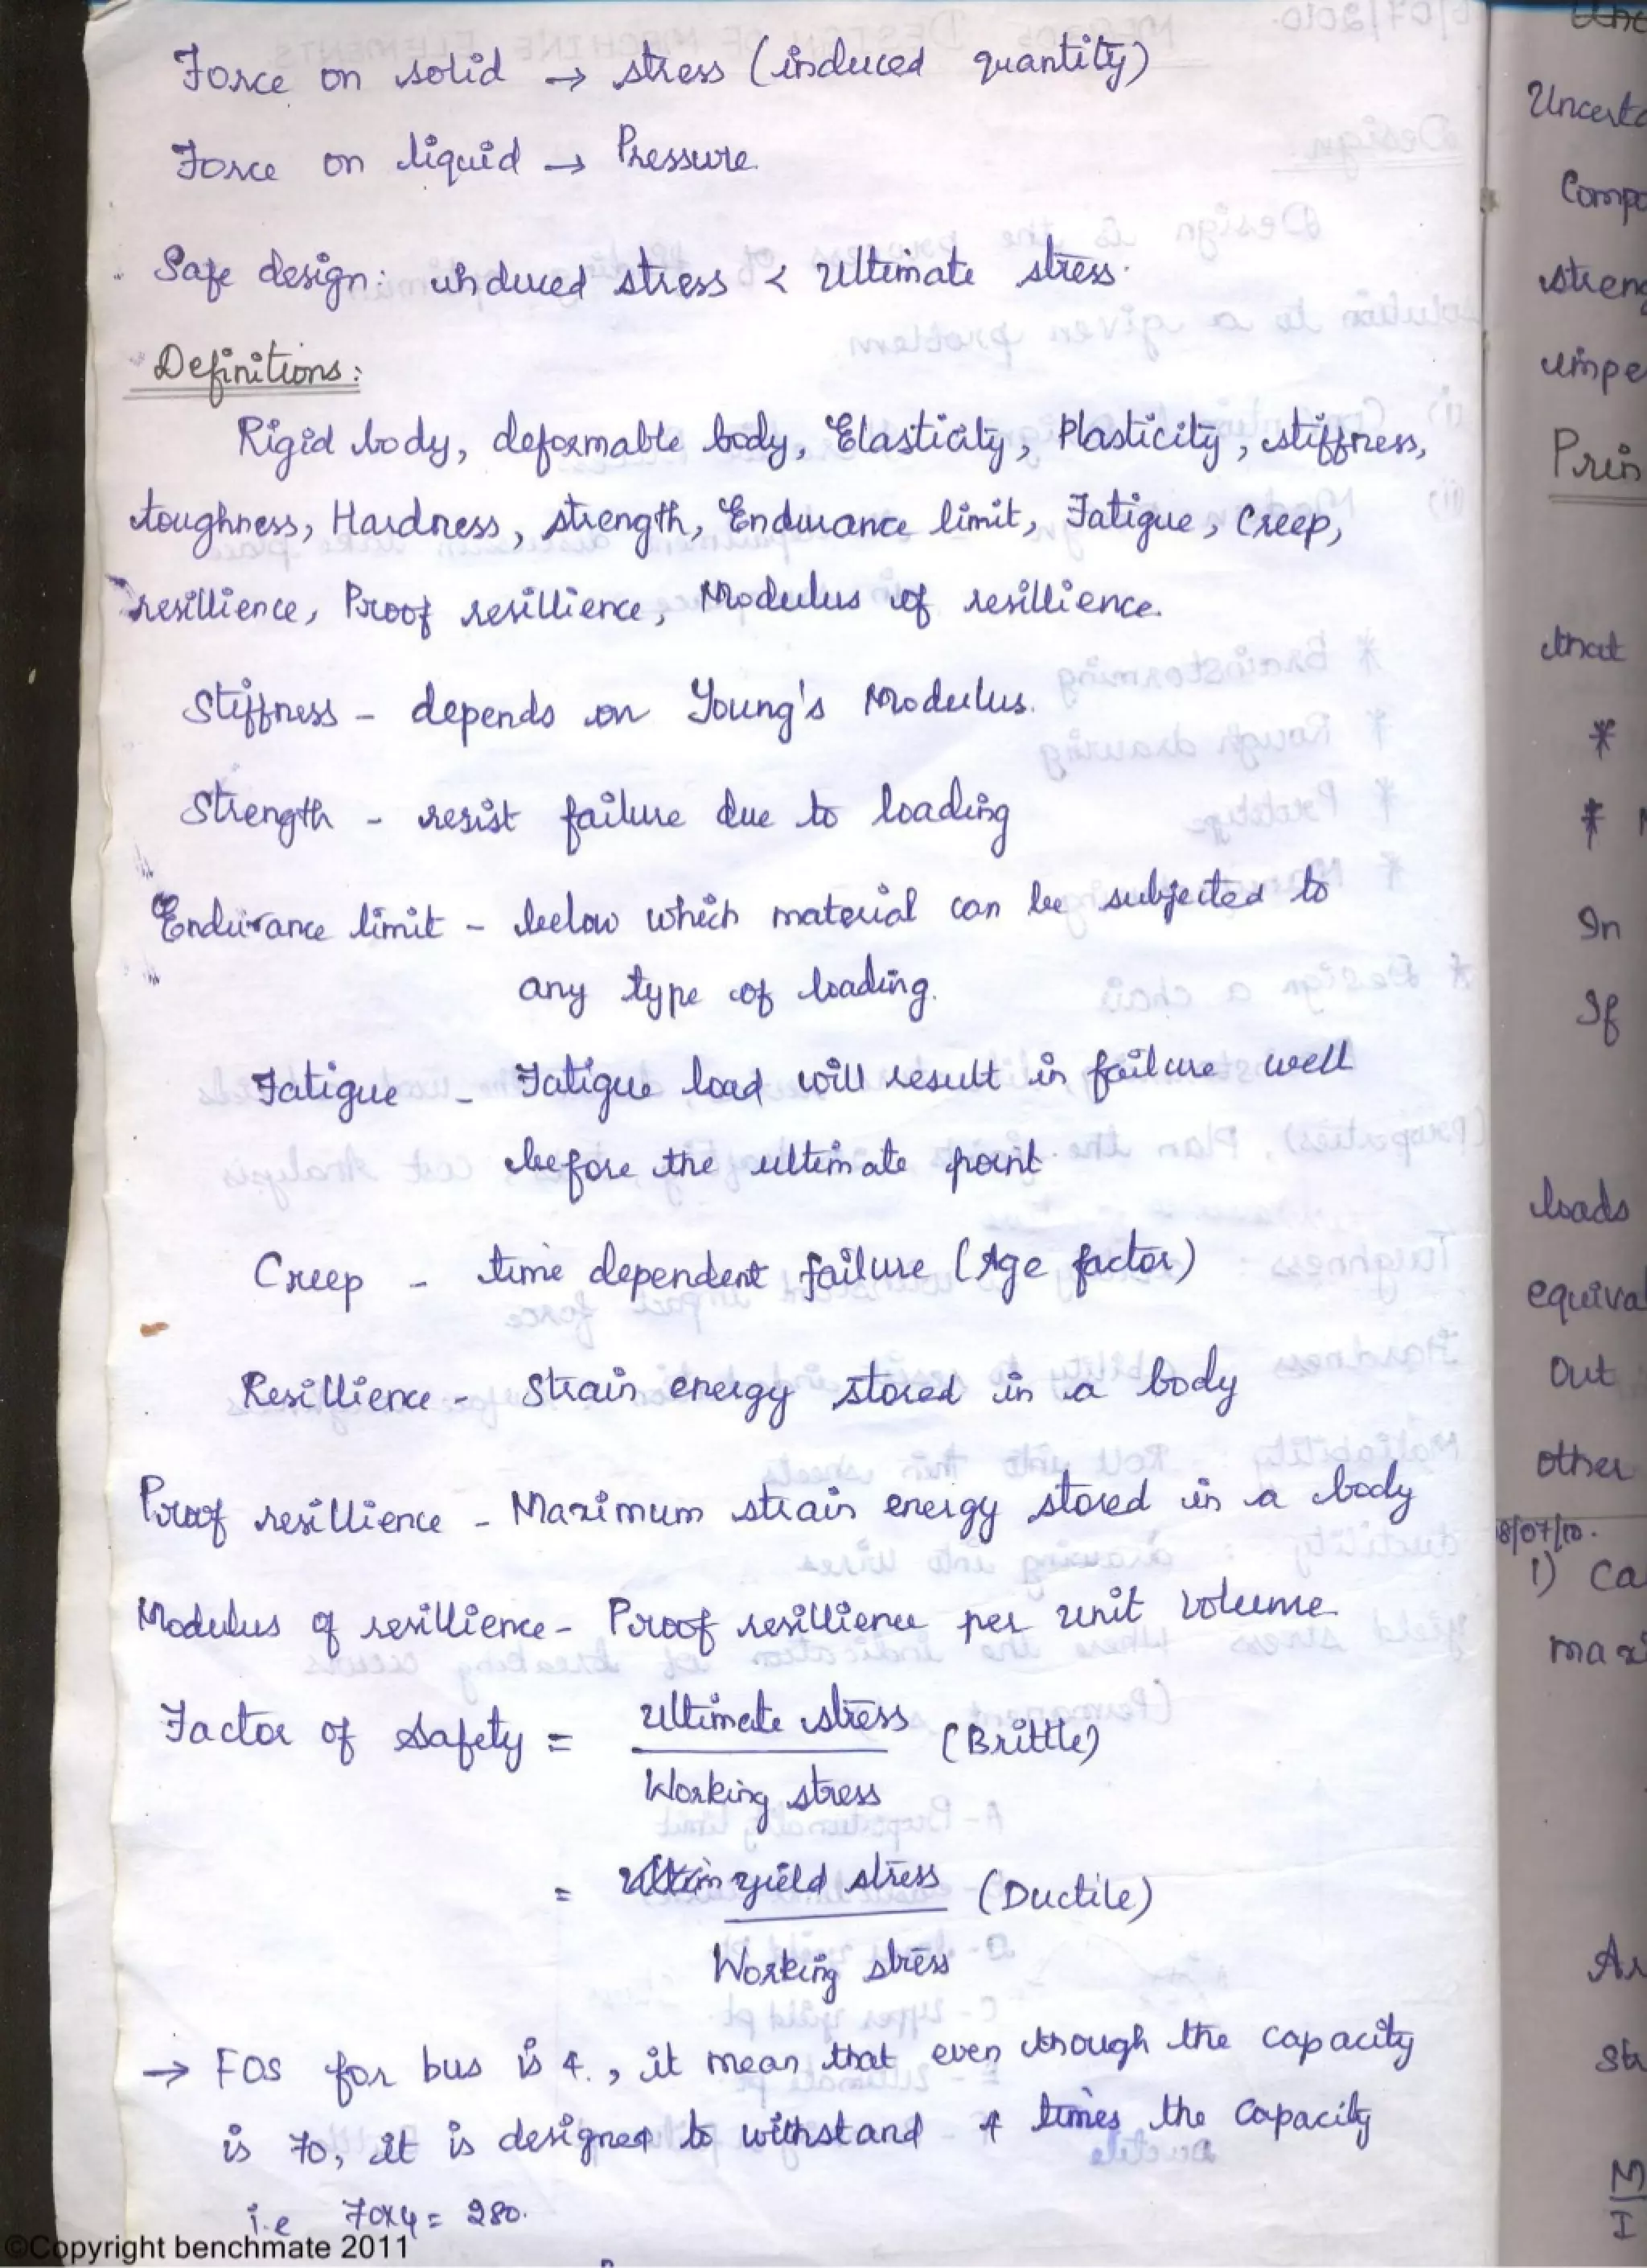 Force on solid → stress (induced quantity)
Force on liquid → Pressure.
Safe design: induced stress < Ultimate stress.
Definitions:
Rigid body, deformable body, Elasticity, Plasticity, stiffness,
toughness, Hardness, strength, Endurance limit, Fatigue, Creep,
resillience, Proof resillience, Modulus of resillience.
Stiffness - depends on Young's Modulus.
Strength - resist failure due to loading
Endurance limit - below which material can be subjected to
any type of loading.
Fatigue - Fatigue load will result in failure well
before the ultimate point.
Creep - time dependent failure (Age factor)
Resillience - Strain energy stored in a body
Proof resillience - Maximum strain energy stored in a body
Modulus of resillience - Proof resillience per unit volume.
Factor of safety = Ultimate stress (Brittle)
Working stress
= yield stress (Ductile)
Working stress
→ FOS for bus is 4., it mean that even though the capacity
is 70, it is designed to withstand 4 times the capacity
i.e 70x4 = 280.
©Copyright benchmate 2011
that
*
*
In
If
loads
Out
other
18/07/10.
1)